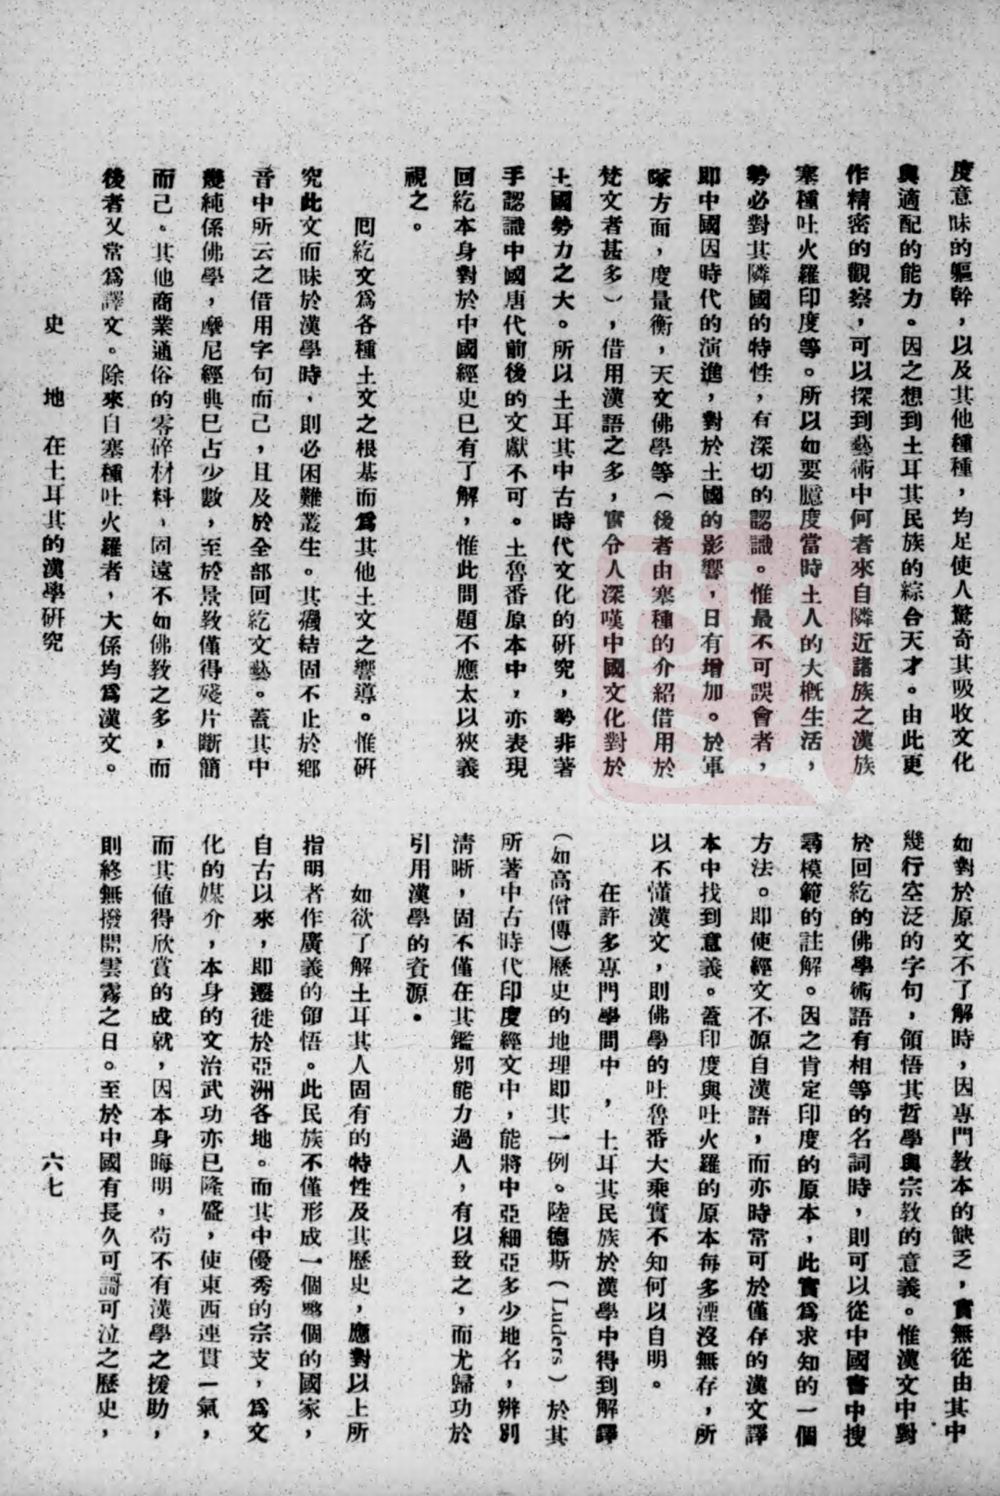 度意味的軀幹，以及其他種種，均足使人驚奇其吸收文化
與適配的能力。因之想到土耳其民族的綜合天才。由此更
作精密的觀察，可以探到藝術中何者來自隣近諸族之漢族
塞種吐火羅印度等。所以如要臆度當時土人的大概生活，
勢必對其隣國的特性，有深切的認識。惟最不可誤會者，
即中國因時代的演進，對於土國的影響，日有增加。於軍
隊方面，度量衡，天文佛學等（後者由塞種的介紹借用於
梵文者甚多），借用漢語之多，實令人深嘆中國文化對於
土國勢力之大。所以土耳其中古時代文化的研究，勢非著
手認識中國唐代前後的文獻不可。土魯番原本中，亦表現
回紇本身對於中國經史已有了解，惟此問題不應太以狹義
視之。
回紇文爲各種土文之根基而爲其他土文之響導。惟研
究此文而昧於漢學時，則必困難叢生。其癥結固不止於鄉
音中所云之借用字句而己，且及於全部回紇文藝。蓋其中
幾純係佛學，摩尼經典巳占少數，至於景教僅得殘片斷簡
而己。其他商業通俗的零碎材料，固遠不如佛教之多，而
後者又常爲譯文。除來自塞種吐火羅者，大係均爲漢文。
如對於原文不了解時，因專門教本的缺乏，實無從由其中
幾行空泛的字句，領悟其哲學與宗教的意義。惟漢文中對
於回紇的佛學術語有相等的名詞時，則可以從中國書中搜
尋模範的註解。因之肯定印度的原本，此實爲求知的一個
方法。即使經文不源自漢語，而亦時常可於僅存的漢文譯
本中找到意義。蓋印度與吐火羅的原本每多湮沒無存，所
以不懂漢文，則佛學的吐魯番大乘實不知何以自明。
在許多專門學問中，土耳其民族於漢學中得到解釋
（如高僧傳）歷史的地理即其一例。陸德斯（Luders）於其
所著中古時代印度經文中，能將中亞細亞多少地名，辨別
清晰，固不僅在其鑑別能力過人，有以致之，而尤歸功於
引用漢學的資源。
如欲了解土耳其人固有的特性及其歷史，應對以上所
指明者作廣義的領悟。此民族不僅形成一個整個的國家，
自古以來，即遷徙於亞洲各地。而其中優秀的宗支，爲文
化的媒介，本身的文治武功亦已隆盛，使東西連貫一氣，
而其値得欣賞的成就，因本身晦明，苟不有漢學之援助，
則終無撥開雲霧之日。至於中國有長久可謌可泣之歷史，
史地 在土耳其的漢學研究
六七